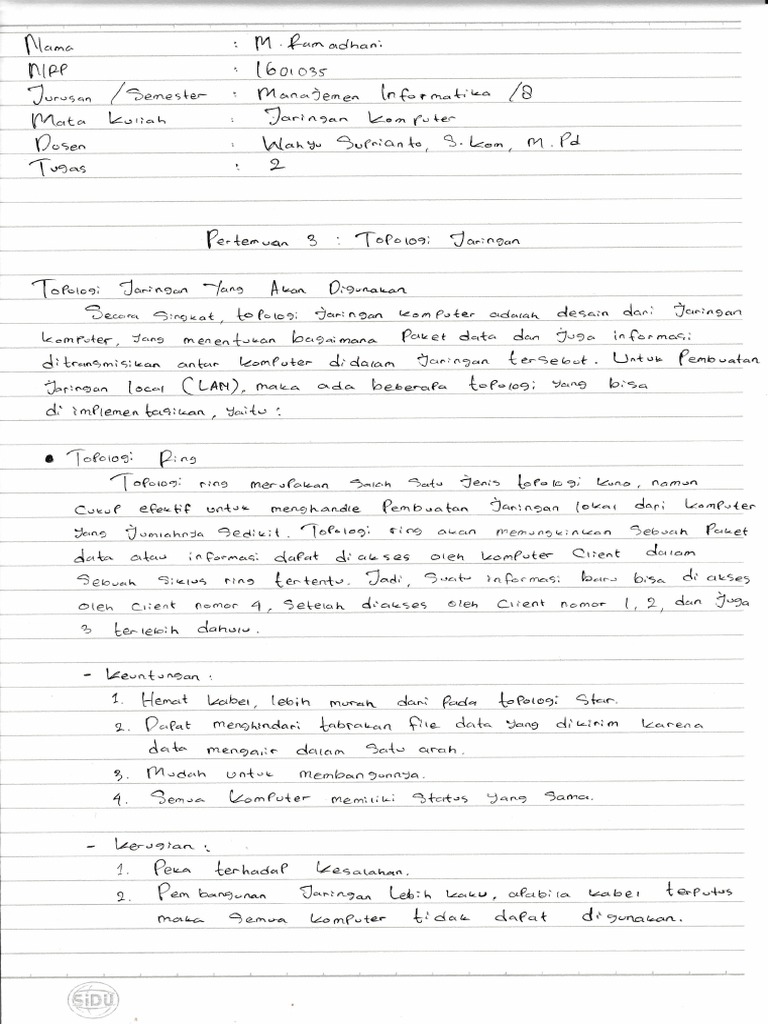 Nama : M. Ramadhani
NIRP : 1601035
Jurusan / Semester : Manajemen Informatika / 8
Mata Kuliah : Jaringan Komputer
Dosen : Wahyu Suprianto, S.Kom, M.Pd
Tugas : 2
Pertemuan 3 : Topologi Jaringan
Topologi Jaringan Yang Akan Digunakan
Secara singkat, topologi jaringan komputer adalah desain dari jaringan
komputer, yang menentukan bagaimana paket data dan juga informasi
ditransmisikan antar komputer didalam jaringan tersebut. Untuk pembuatan
jaringan local (LAN), maka ada beberapa topologi yang bisa
di implementasikan, yaitu :
• Topologi Ring
Topologi ring merupakan salah satu jenis topologi kuno, namun
cukup efektif untuk menghandle pembuatan jaringan lokal dari komputer
yang jumlahnya sedikit. Topologi ring akan memungkinkan sebuah paket
data atau informasi dapat diakses oleh komputer client dalam
sebuah siklus ring tertentu. Jadi, suatu informasi baru bisa di akses
oleh client nomor 4, setelah diakses oleh client nomor 1, 2, dan juga
3 terlebih dahulu.
- Keuntungan :
1. Hemat kabel, lebih murah dari pada topologi star.
2. Dapat menghindari tabrakan file data yang dikirim karena
data mengalir dalam satu arah.
3. Mudah untuk membangunnya.
4. Semua komputer memiliki status yang sama.
- Kerugian :
1. Peka terhadap kesalahan.
2. Pembangunan jaringan lebih kaku, apabila kabel terputus
maka semua komputer tidak dapat digunakan.
SiDU